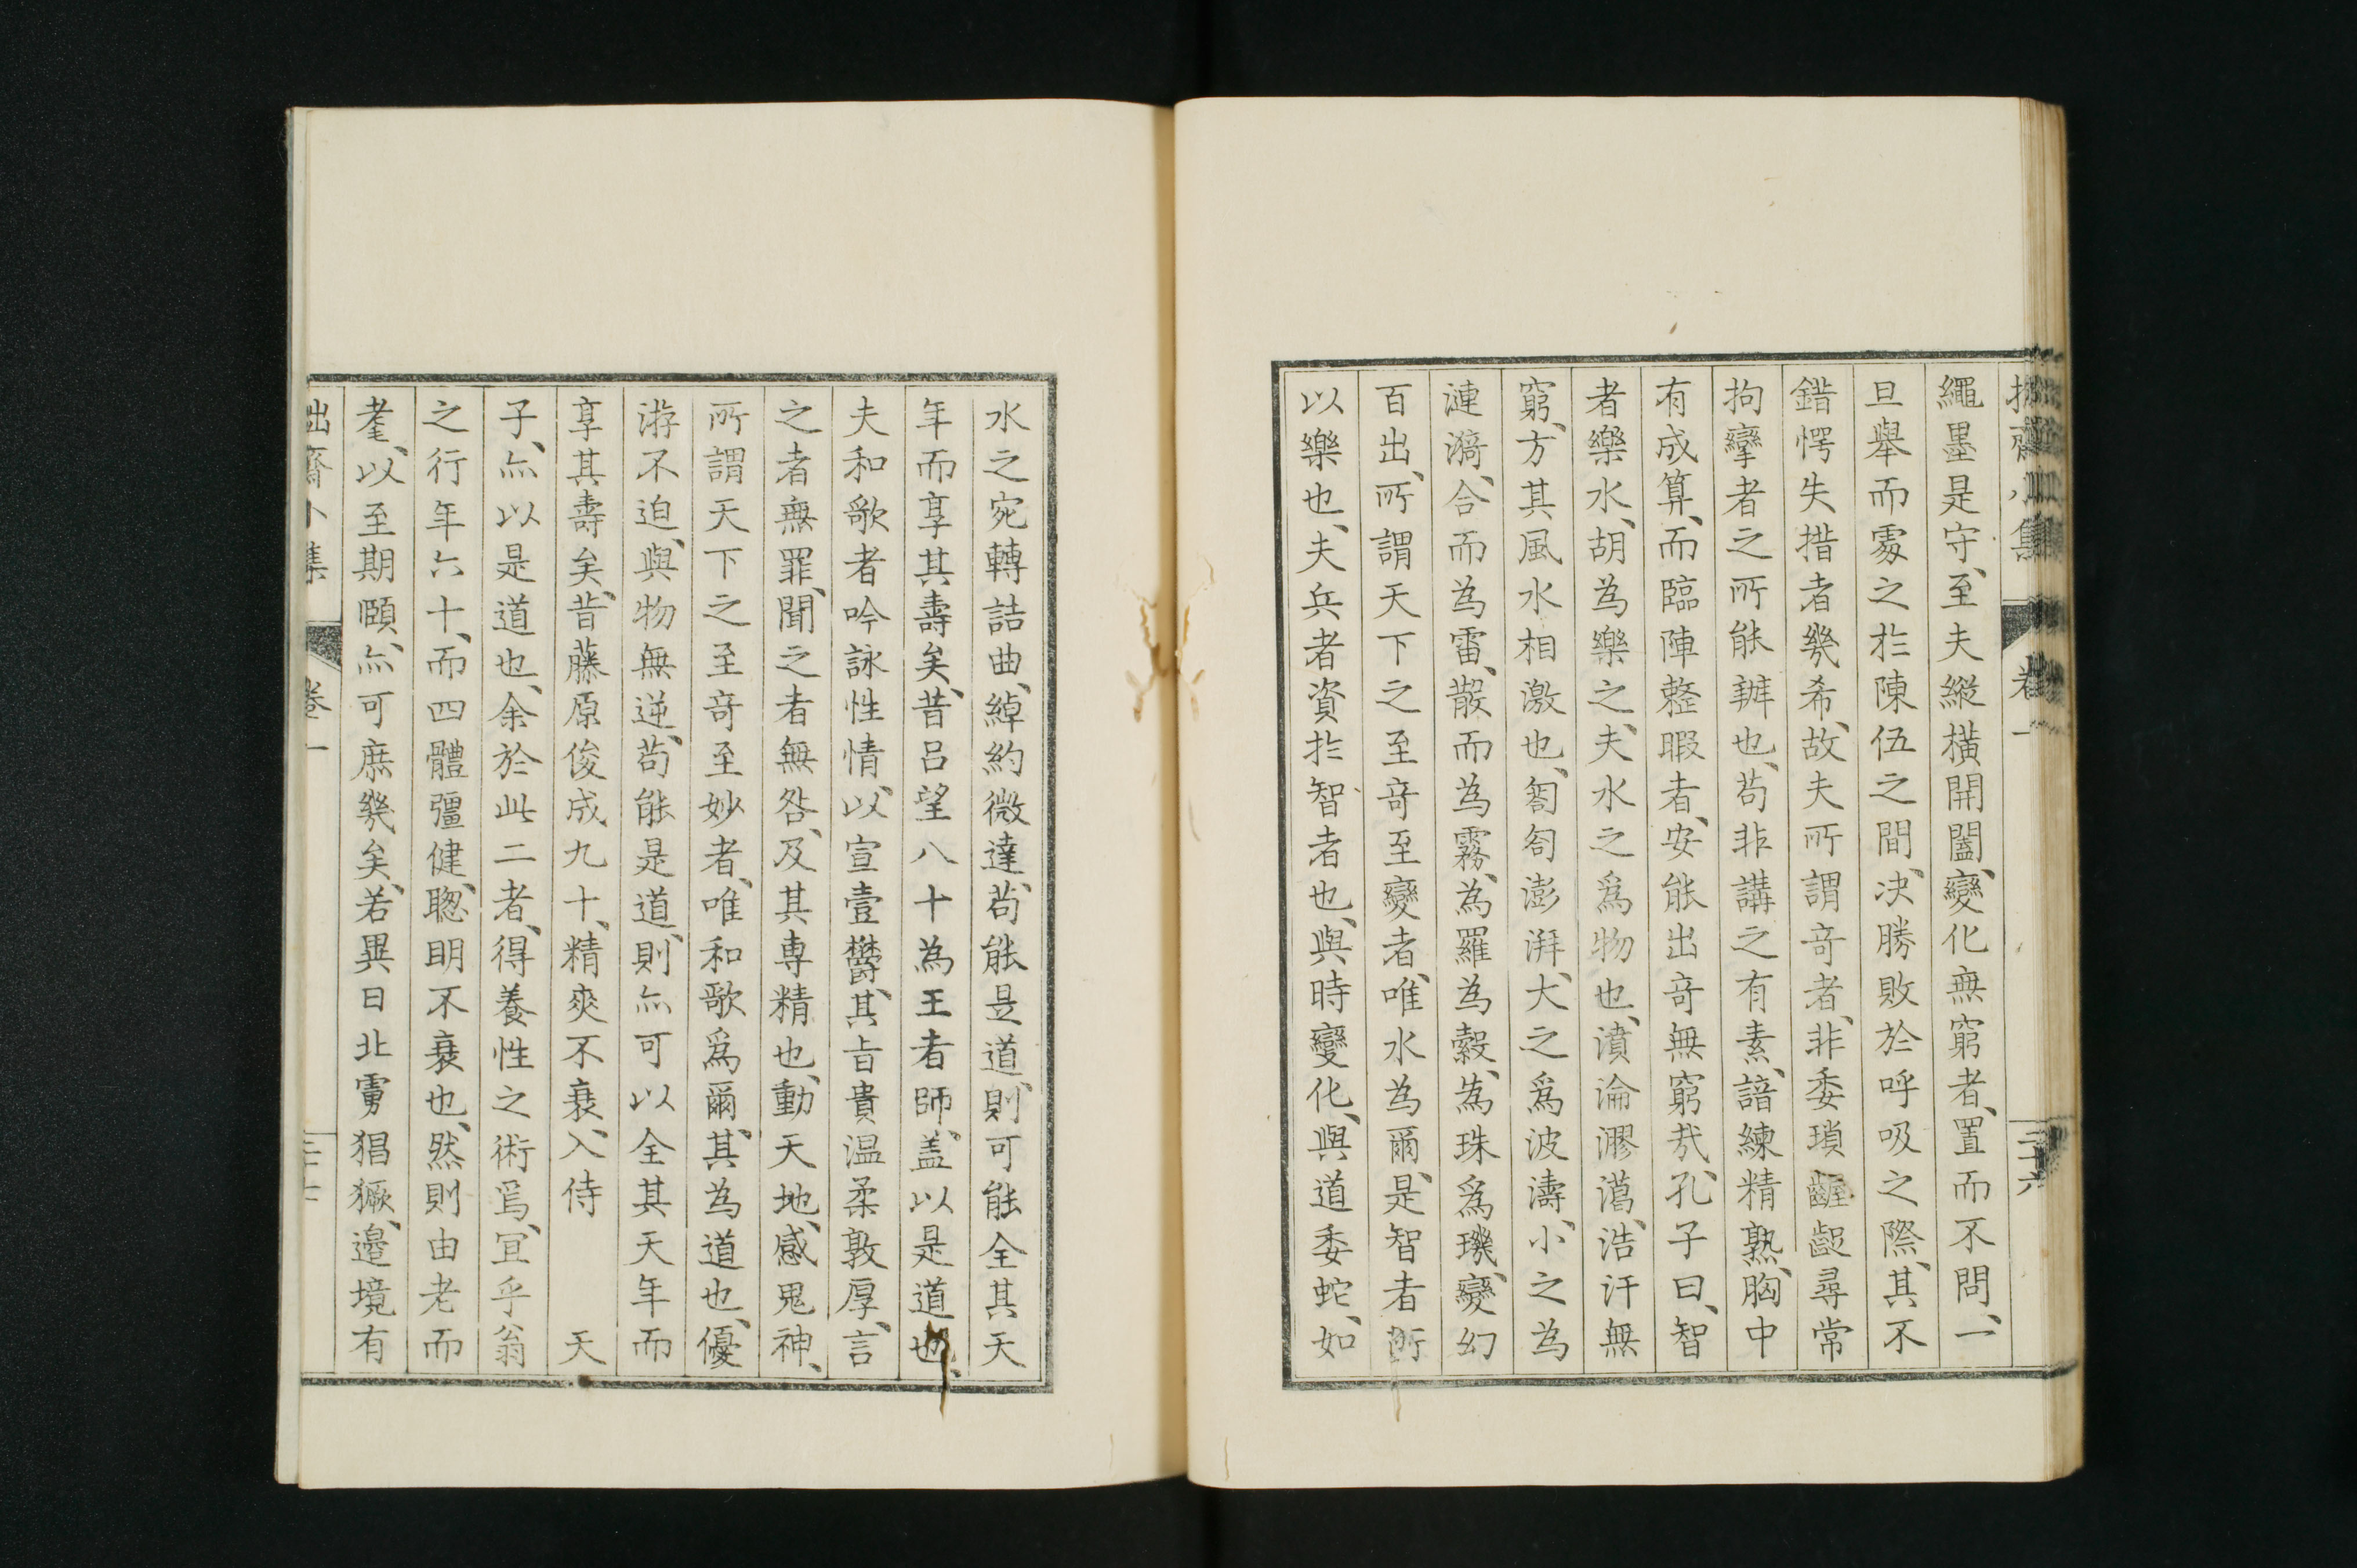 拙齋小集 卷一 二十六
繩墨是守、至夫縱橫開闔、變化無窮者、置而不問、一
旦舉而䖏之於陳伍之間、决勝敗於呼吸之際、其不
錯愕失措者幾希、故夫所謂竒者、非委瑣齷齪尋常
拘攣者之所能辦也、苟非講之有素、諳練精熟、胸中
有成算、而臨陣整暇者、安能出竒無窮㢤、孔子曰、智
者樂水、胡為樂之、夫水之爲物也、濆淪漻濿、浩汗無
窮、方其風水相激也、訇訇澎湃、大之爲波濤、小之為
漣漪、合而為雷、散而為霧、為羅為縠、為珠爲璣、變幻
百出、所謂天下之至竒至變者、唯水為爾、是智者所
以樂也、夫兵者資於智者也、與時變化、與道委蛇、如
水之宛轉詰曲、綽約微達、苟能是道、則可能全其天
年而享其壽矣、昔呂望八十為王者師、盖以是道也、
夫和歌者吟詠性情、以宣壹鬱、其旨貴温柔敦厚、言
之者無罪、聞之者無咎、及其専精也、動天地、感鬼神、
所謂天下之至竒至妙者、唯和歌爲爾、其為道也、優
游不迫、與物無逆、苟能是道、則亦可以全其天年而
享其壽矣、昔藤原俊成九十、精爽不衰、入侍 天
子、亦以是道也、余於此二者、得養性之術焉、冝乎翁
之行年六十、而四體彊健、聦明不衰也、然則由老而
耄、以至期頤、亦可庶幾矣、若異日北虜猖獗、邊境有
拙齋小集 卷一